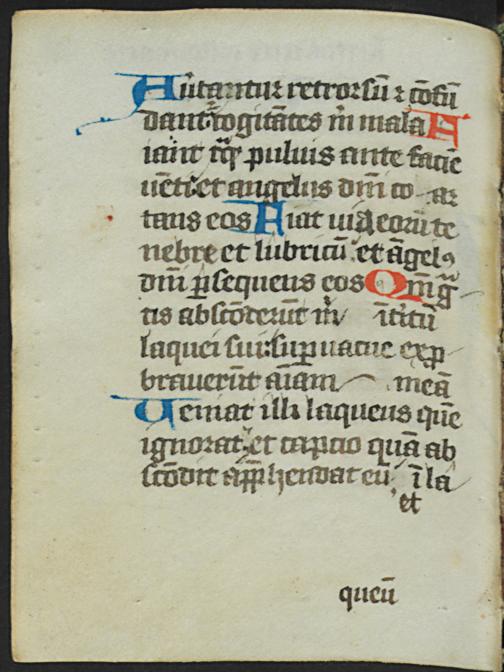 Autantur retrorsū ⁊ cōfū
dant᷑ cogitātes m̄ mala F
iant tāq̄ puluis ante facie
uēti: et angelus dn̄i co ar
tans eos Fiat uia eorū te
nebre et lubricū: et āgelꝰ
dn̄i ꝑsequens eos Qm̄ gͣ
tis abscōderūt m̄ ītitū
laquei sui: suꝑuacue exp̱
braverūt aīam meā
Veniat illi laqueus quē
ignorat: et captio quā ab
scōdit app̱hendat eū ī la
et
queū